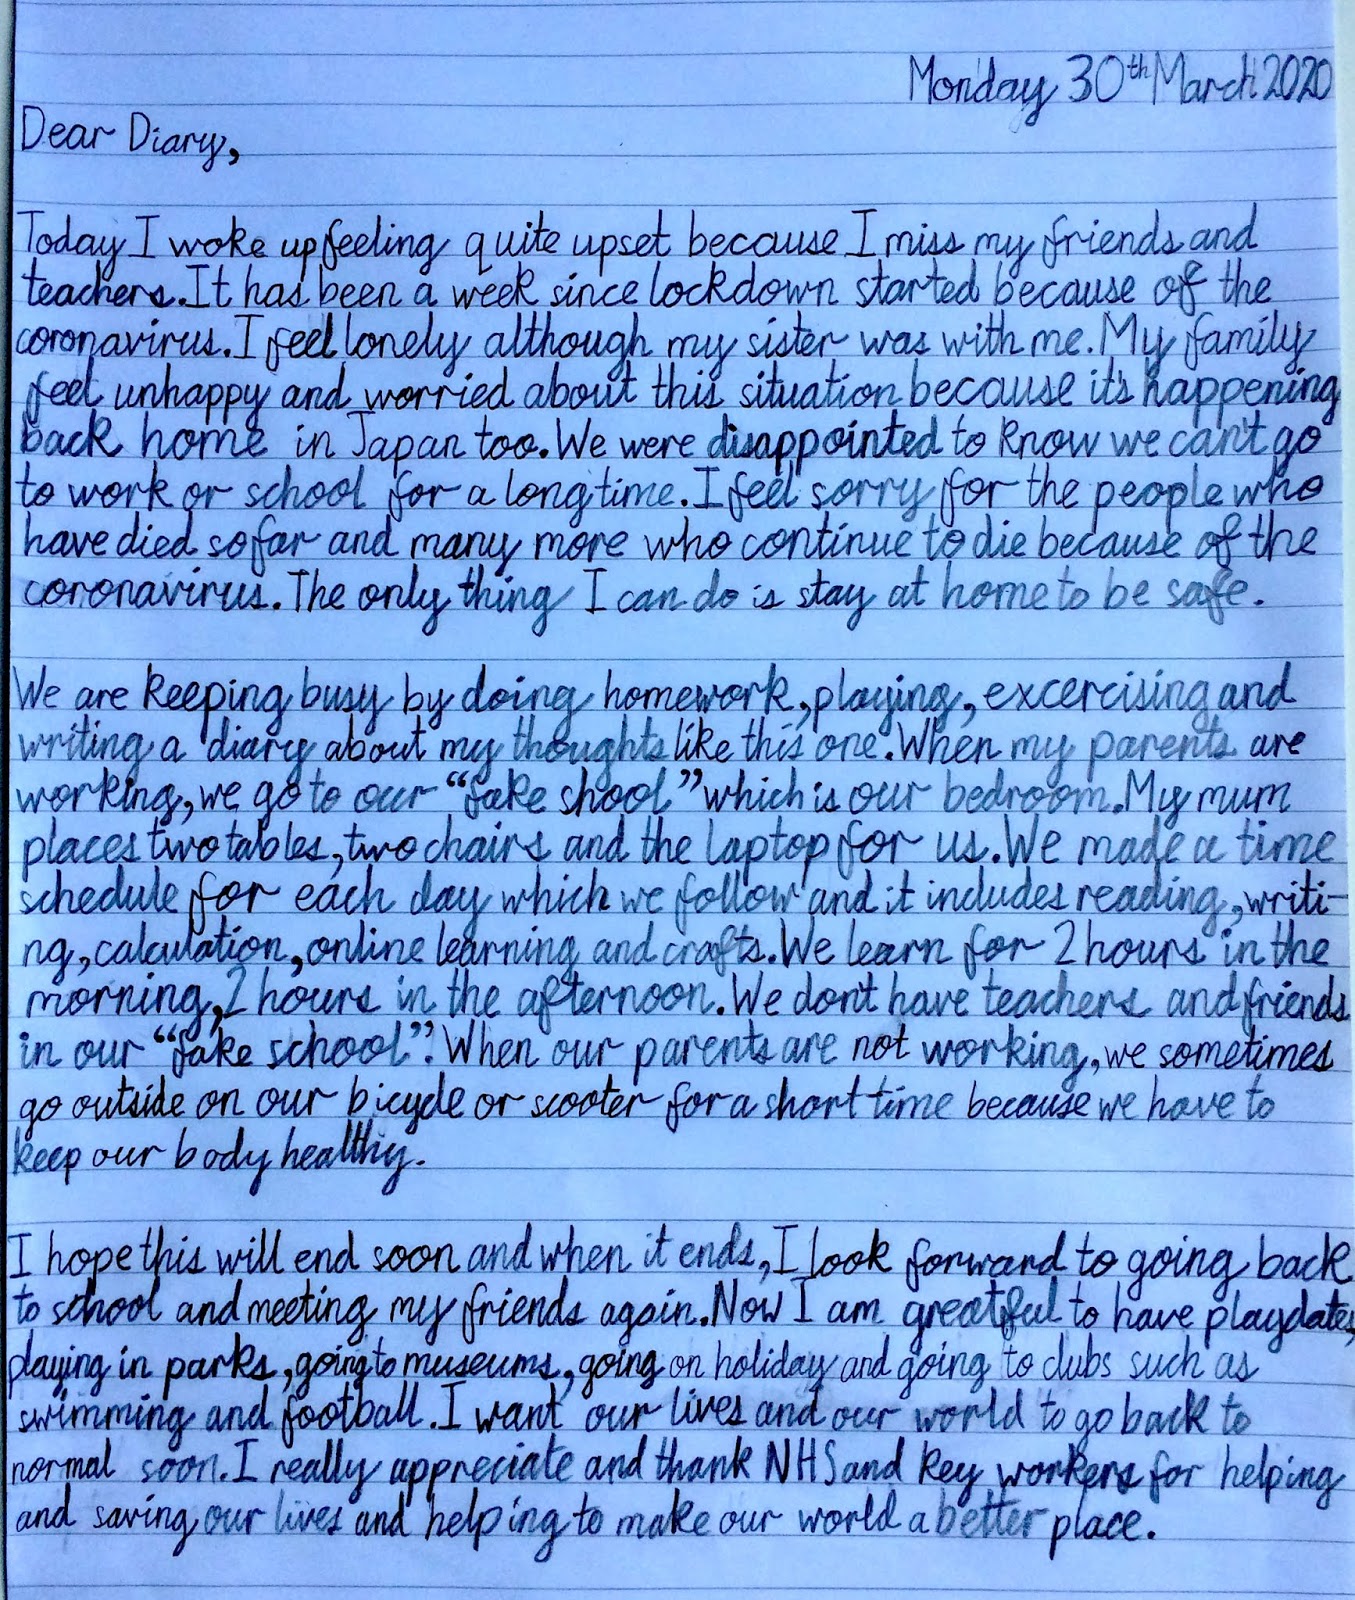 Monday 30th March 2020
Dear Diary,
Today I woke up feeling quite upset because I miss my friends and
teachers. It has been a week since lockdown started because of the
coronavirus. I feel lonely although my sister was with me. My family
feel unhappy and worried about this situation because it's happening
back home in Japan too. We were disappointed to know we can't go
to work or school for a long time. I feel sorry for the people who
have died so far and many more who continue to die because of the
coronavirus. The only thing I can do is stay at home to be safe.
We are keeping busy by doing homework, playing, excercising and
writing a diary about my thoughts like this one. When my parents are
working, we go to our "fake shool" which is our bedroom. My mum
places two tables, two chairs and the laptop for us. We made a time
schedule for each day which we follow and it includes reading, writi-
ng, calculation, online learning and crafts. We learn for 2 hours in the
morning, 2 hours in the afternoon. We don't have teachers and friends
in our "fake school". When our parents are not working, we sometimes
go outside on our bicycle or scooter for a short time because we have to
keep our body healthy.
I hope this will end soon and when it ends, I look forward to going back
to school and meeting my friends again. Now I am greatful to have playdates,
playing in parks, going to museums, going on holiday and going to clubs such as
swimming and football. I want our lives and our world to go back to
normal soon. I really appreciate and thank NHS and key workers for helping
and saving our lives and helping to make our world a better place.